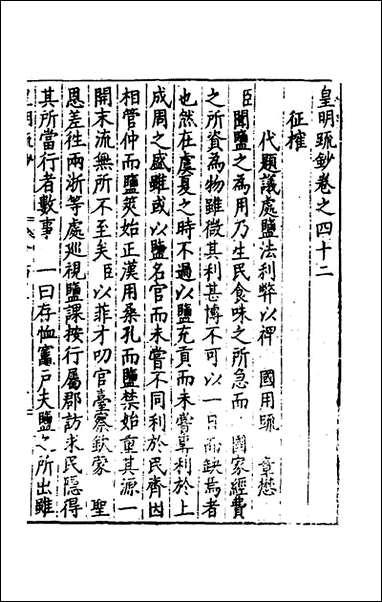 皇明疏鈔卷之四十二
征榷
代題議處鹽法利弊以裨 國用疏 章懋
臣聞鹽之為用乃生民食味之所急而 國家經費
之所資為物雖微其利甚博不可以一日而缺焉者
也然在虞夏之時不過以鹽充貢而未嘗專利於上
成周之盛雖或以鹽名官而未嘗不同利於民齊因
相管仲而鹽筴始正漢用桑孔而鹽禁始重其源一
開末流無所不至矣臣以菲才叨官臺察欽蒙 聖
恩差往兩浙等處巡視鹽課按行屬郡訪求民隱得
其所當行者數事 一曰存恤竈戶夫鹽之所出雖
皇明疏鈔